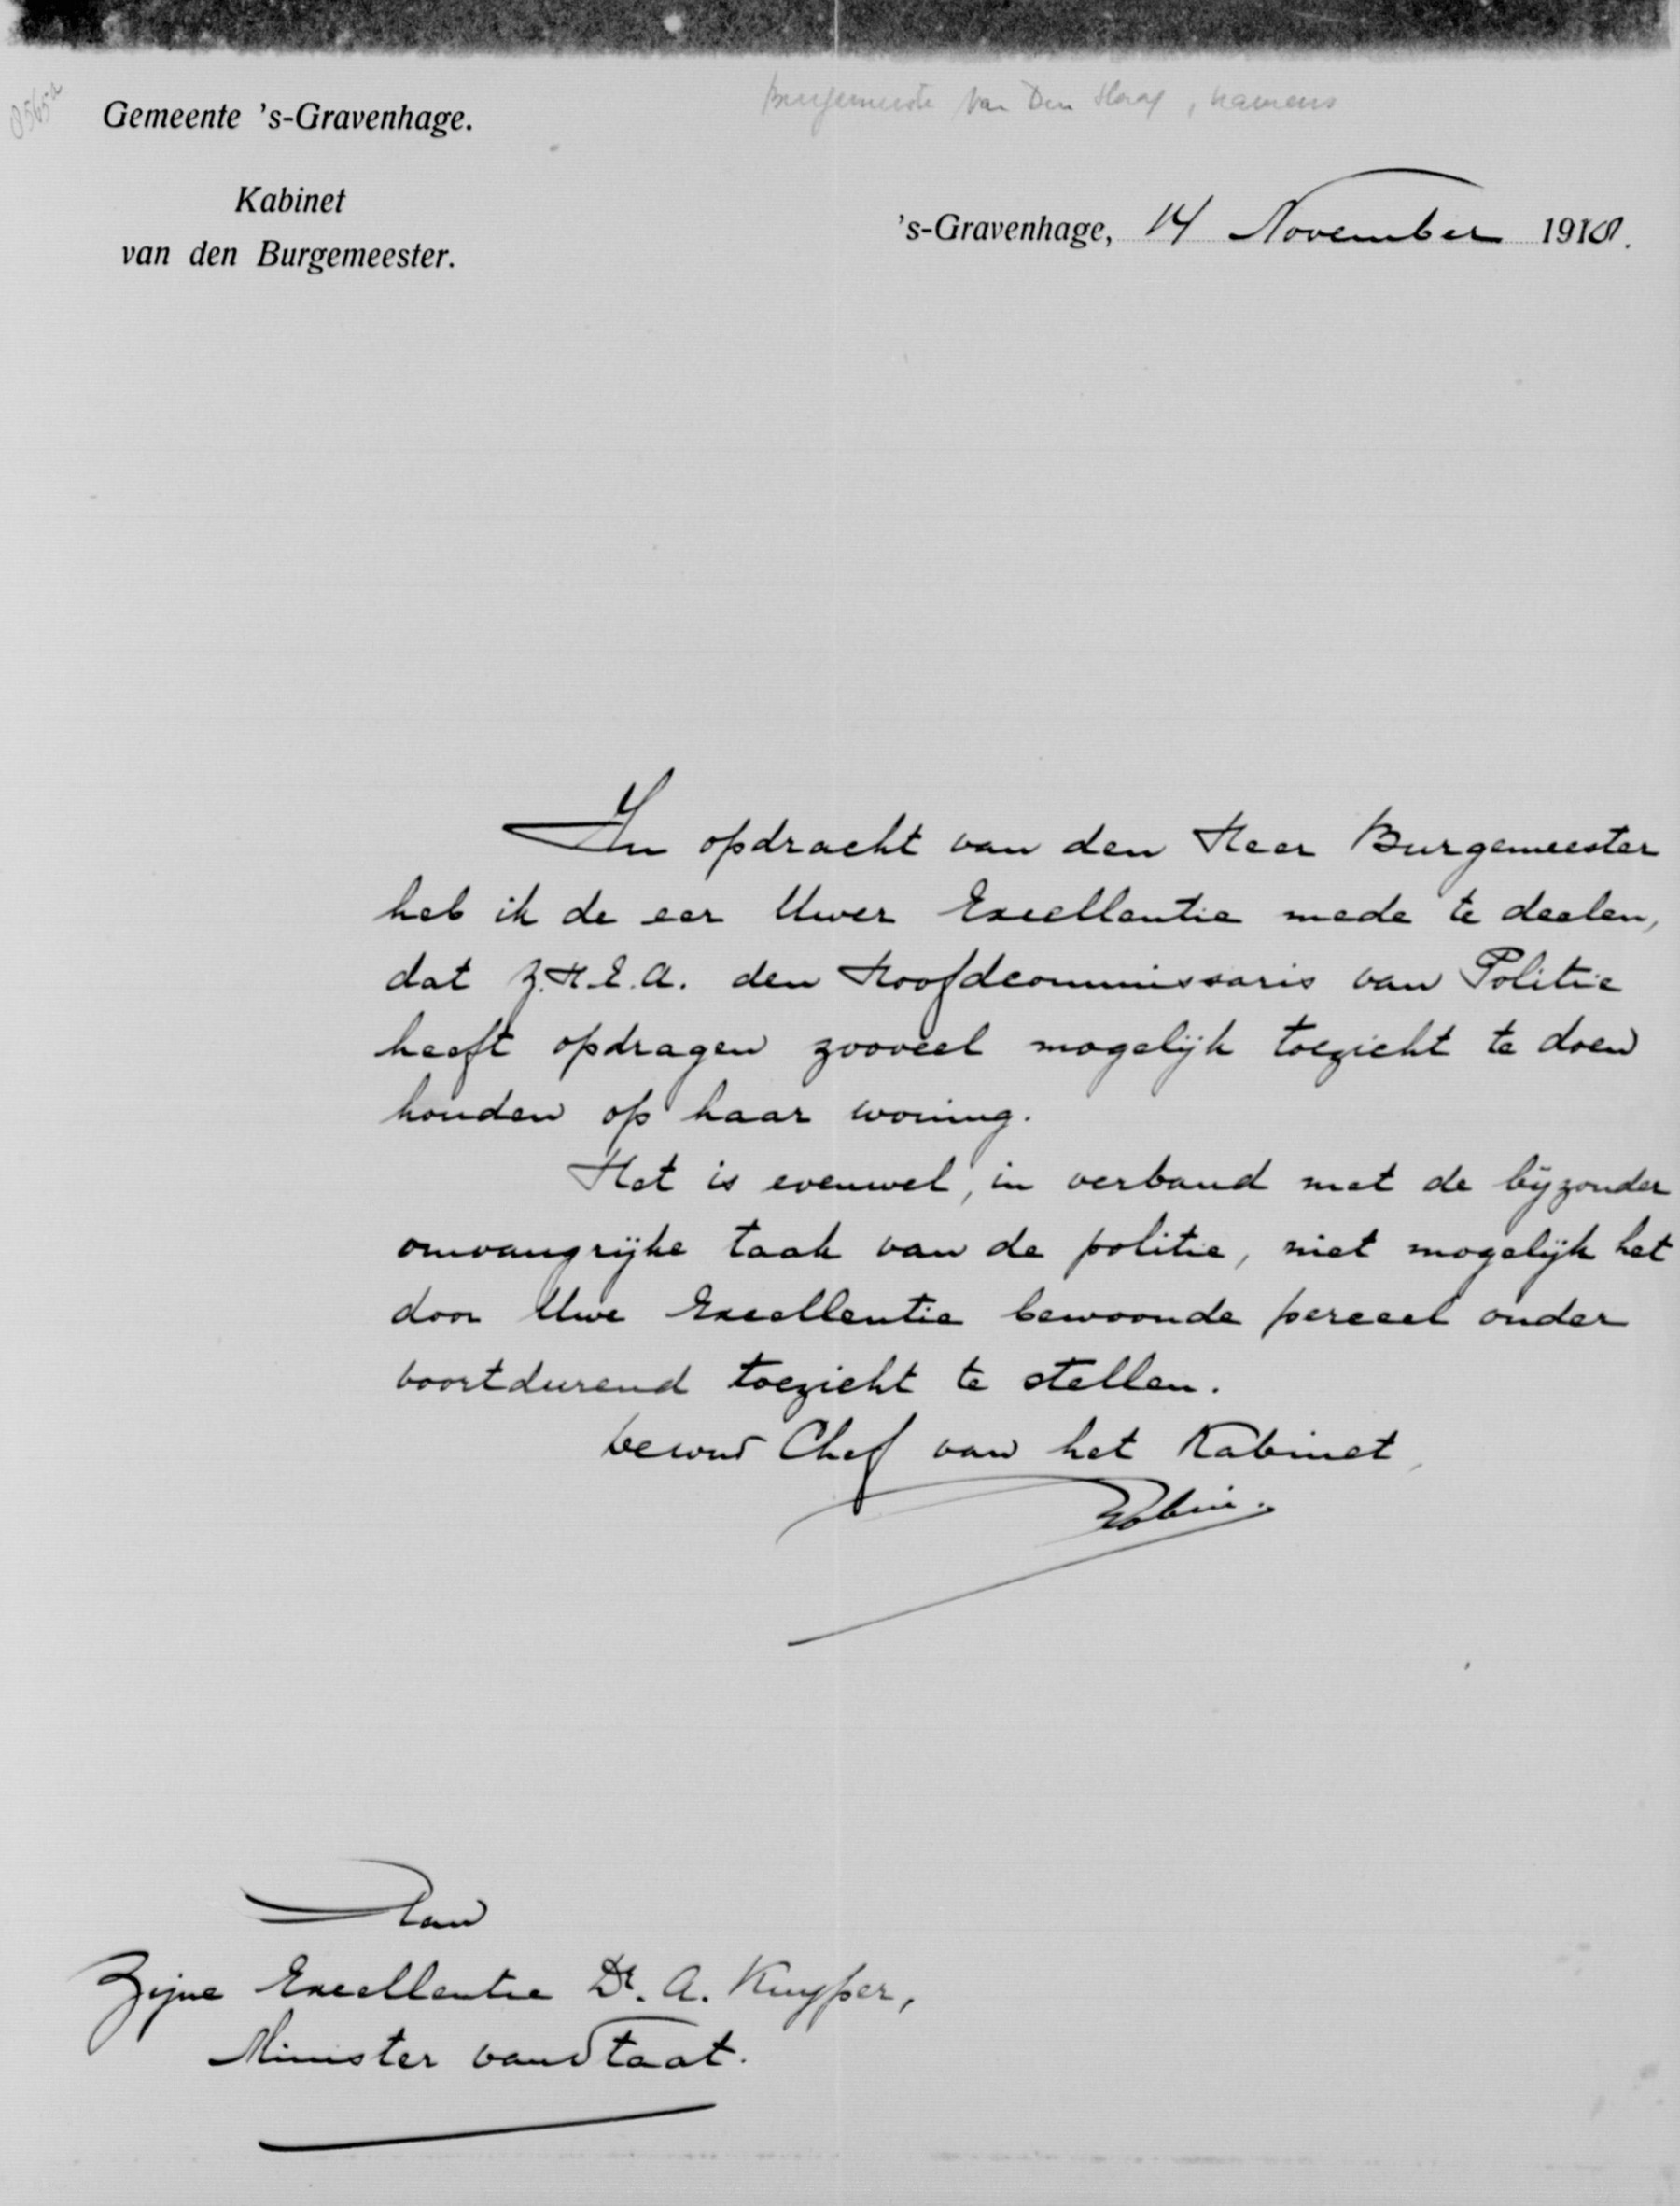 Burgemeester van Den Haag, namens
Gemeente 's-Gravenhage.
Kabinet
van den Burgemeester.
's-Gravenhage, 14 November 1918.
In opdracht van den Heer Burgemeester
heb ik de eer Uwer Excellentie mede te deelen,
dat Z.H.E.A. den Hoofdcommissaris van Politie
heeft opdragen zooveel mogelijk toezicht te doen
houden op haar woning.
Het is evenwel, in verband met de bijzonder
omvangrijke taak van de politie, niet mogelijk het
door Uwe Excellentie bewoonde perceel onder
voortdurend toezicht te stellen.
bewnd Chef van het Kabinet,
Aan
Zijne Excellentie Dr. A. Kuyper,
Minister van Staat.